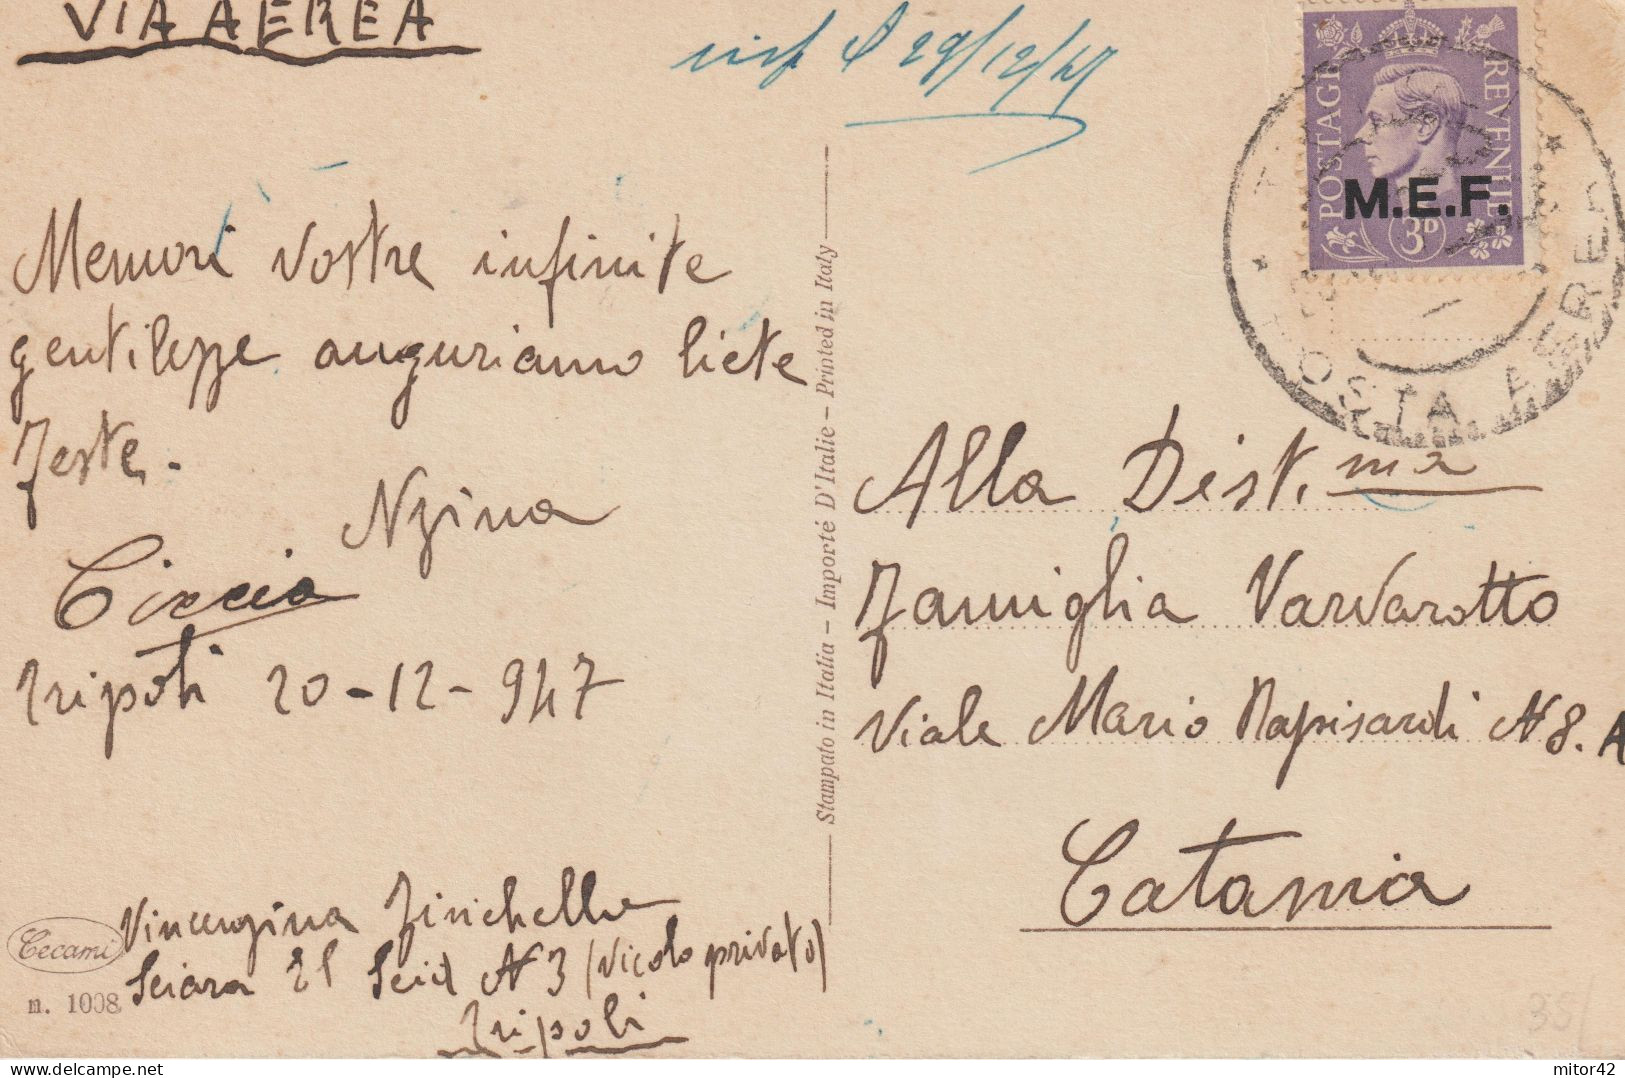 VIA AEREA
29/12/47
POSTAGE
REVENUE
M.E.F.
3D
POSTA AEREA
Memori vostre infinite
gentilezze auguriamo liete
feste.
Nzina
Ciccio
Tripoli 20-12-947
Stampato in Italia – Importé D'Italie – Printed in Italy
Alla Dist.ma
Famiglia Varvarotto
Viale Mario Rapisardi N 8. A
Catania
Vincenzina Finichella
Sciara El Seid N 3 (Vicolo privato)
Tripoli
Cecami
n. 1008
35/
mitor42